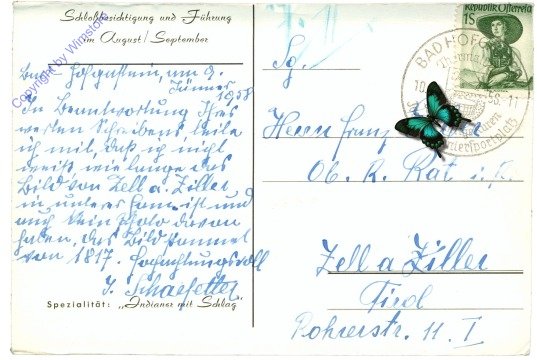 Schloßbesichtigung und Führung
im August/September
Bad Hofgastein, am 9.
Jänner
1958
In Beantwortung Ihres
werten Schreibens teile
ich mit, daß ich nicht
weiß wie lange das
Bild von Zell a. Ziller,
in unserer Fam. ist und
auch kein Photo davon
haben, das Bild stammt
von 1817. Hochachtungsvoll
Spezialität: „Indianer mit Schlag"
Copyright by Wimstore
Sg.
Herrn Franz
Ob. R. Rat i. R.
Zell a Ziller
Tirol
11. I
Republik Österreich
1S
BAD HOFG